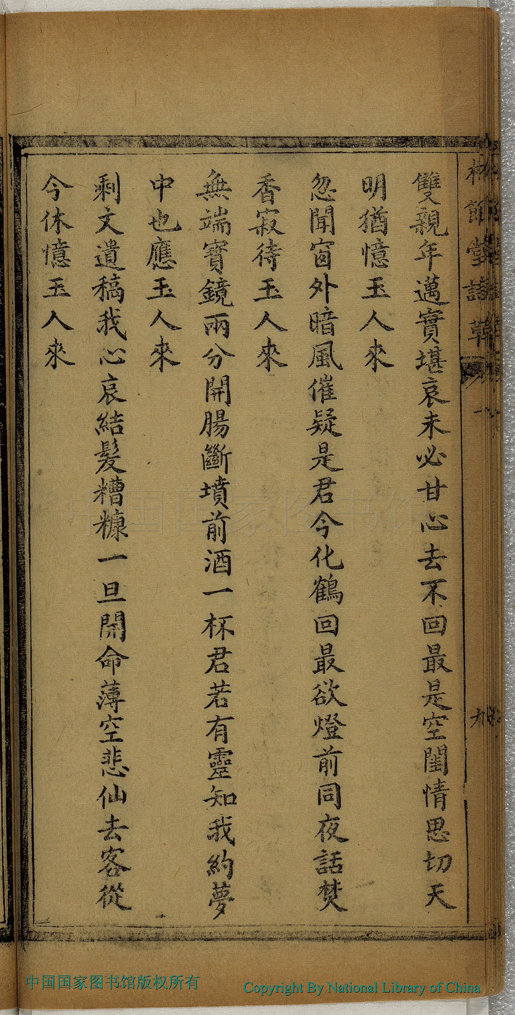 雙親年邁實堪哀未必甘心去不回最是空閨情思切天
明猶憶玉人來
忽聞窗外暗風催疑是君今化鶴回最欲燈前同夜話焚
香寂待玉人來
無端寶鏡兩分開腸斷墳前酒一杯君若有靈知我約夢
中也應玉人來
剩文遺稿我心哀結髮糟糠一旦開命薄空悲仙去客從
今休憶玉人來
中国国家图书馆版权所有
Copyright By National Library of China